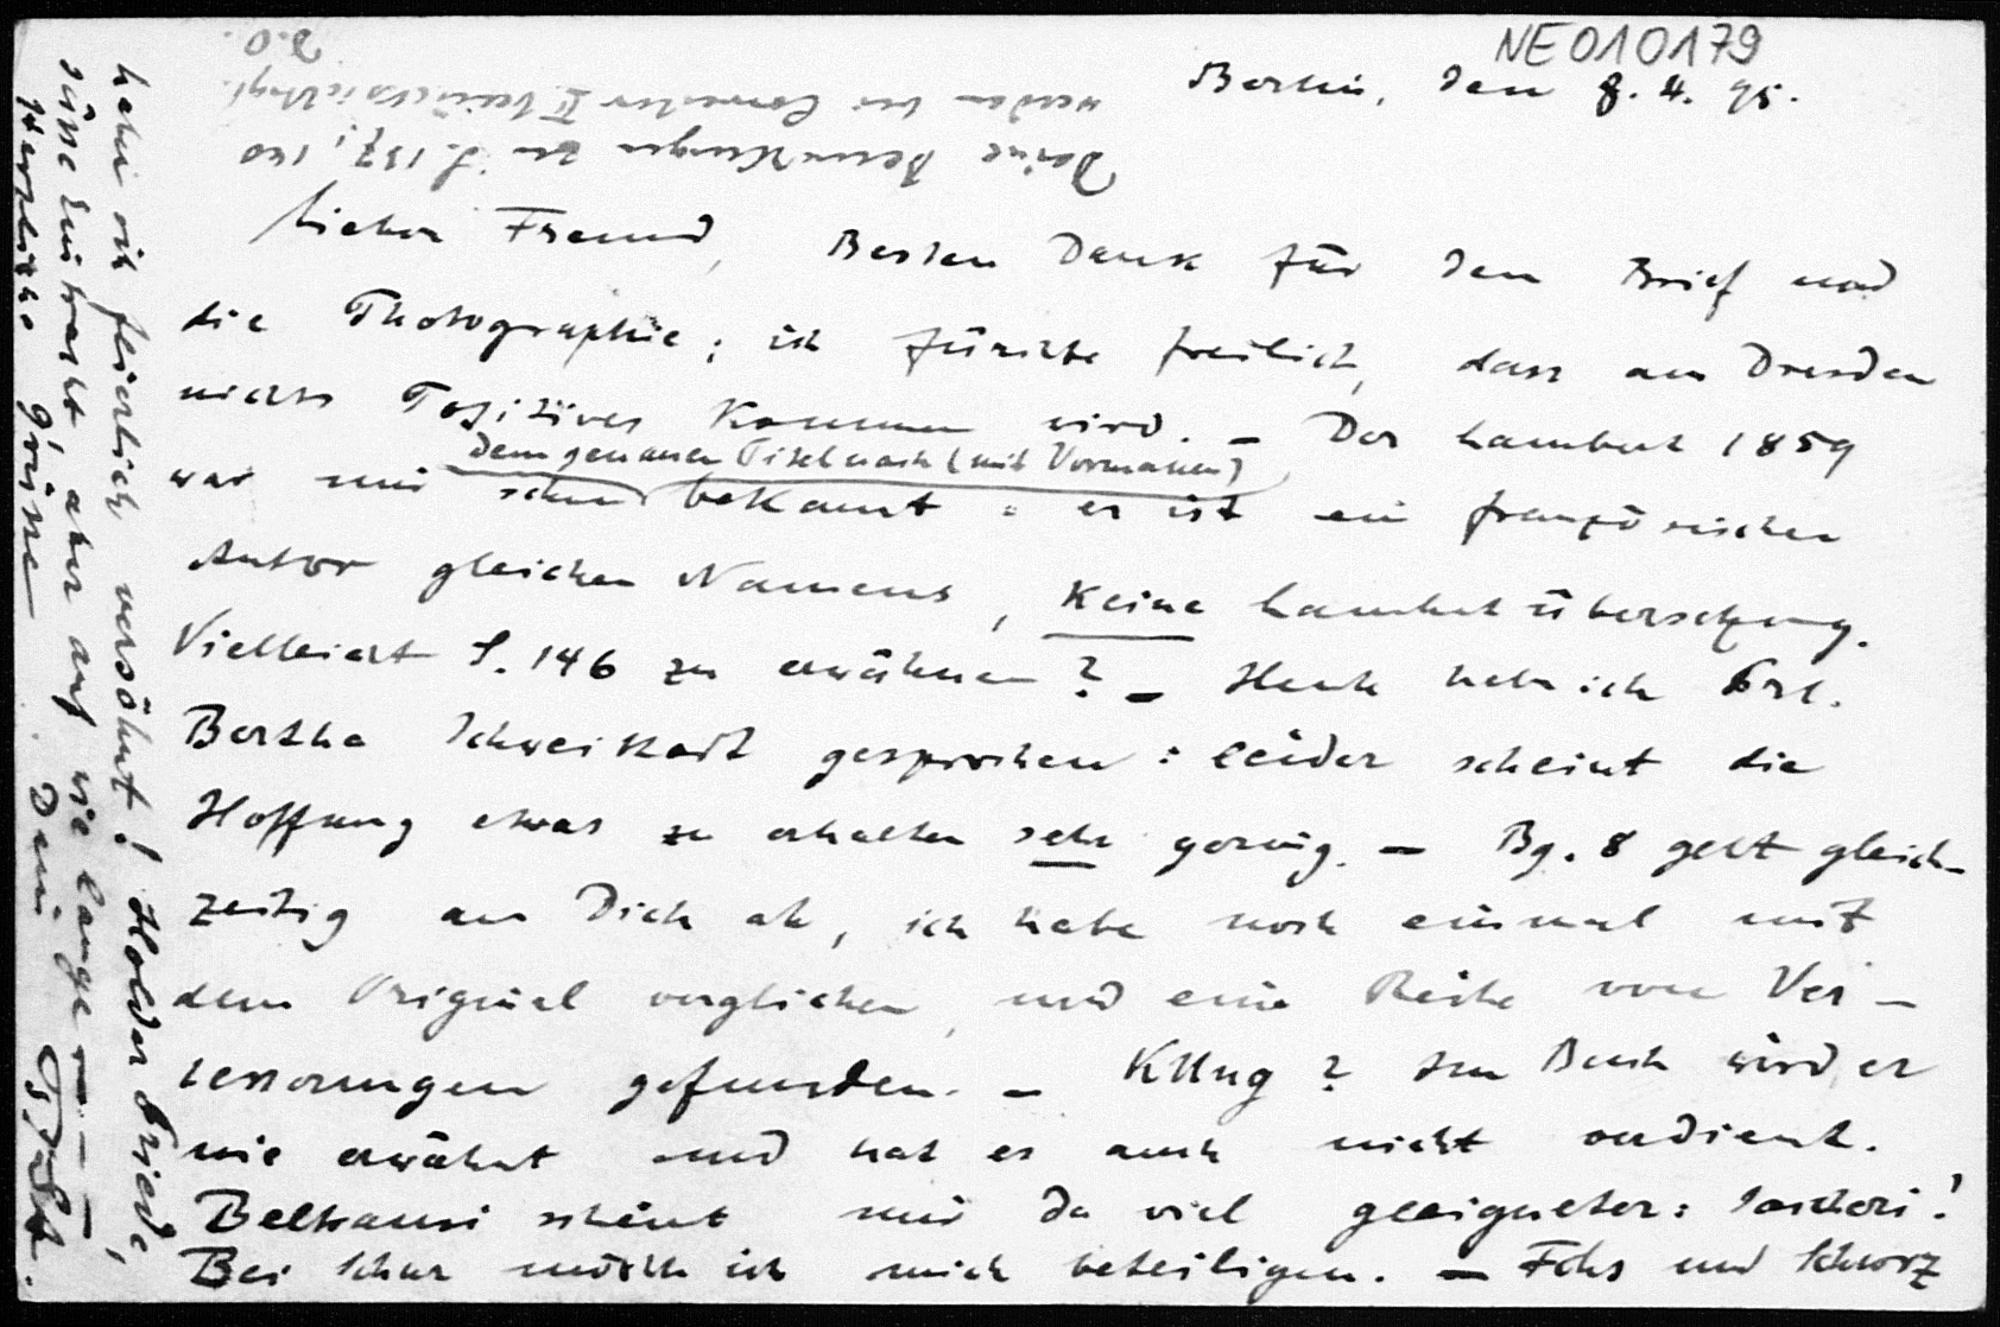 NE010179
Berlin, den 8. 4. 95.
Lieber Freund, Besten Dank für den Brief und
die Photographie; ich fürchte freilich, dass aus Dresden
nichts Positives kommen wird. – Der Lambert 1859
dem genauen Titel nach (mit Vornamen)
war mir schon bekannt: er ist ein französischer
Autor gleichen Namens, keine Lambertübersetzung.
Vielleicht S. 146 zu erwähnen? – Heute habe ich Frl.
Bertha Schweikart gesprochen: leider scheint die
Hoffnung etwas zu erhalten sehr gering. – Bg. 8 geht gleich-
zeitig an Dich ab, ich habe noch einmal mit
dem Original verglichen, und eine Reihe von Ver-
besserungen gefunden. – Klug? Im Buch wird er
nie erwähnt und hat es auch nicht verdient.
Beltrami scheint mir da viel geeigneter: Saccheri!
Bei Schur möchte ich mich beteiligen. – Fchs und Schwrz
haben sich feierlich versöhnt! Holder Friede,
süsse Eintracht, aber auf wie lange – – –
Herzliche Grüsse Dein P. St.
Deine Bemerkungen zu S. 137, 140
werden bei Correctur II berücksichtigt.
D. O.